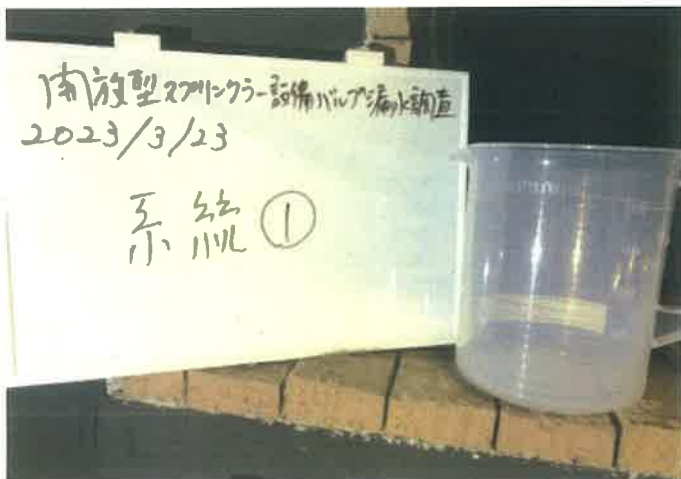 開放型スプリンクラー設備バルブ漏水調査
2023/3/23
系統①